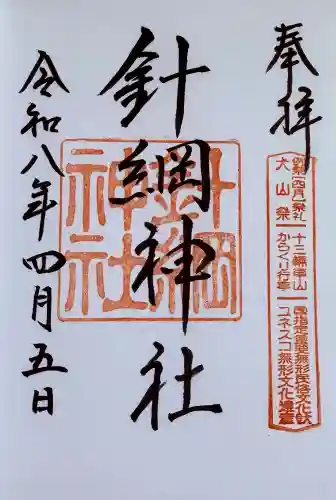 奉拝
例祭(四月)祭礼
犬山祭
十三輛車山
からくり行事
国指定重要無形民俗文化財
ユネスコ無形文化遺産
針綱神社
針綱
神社
令和八年四月五日